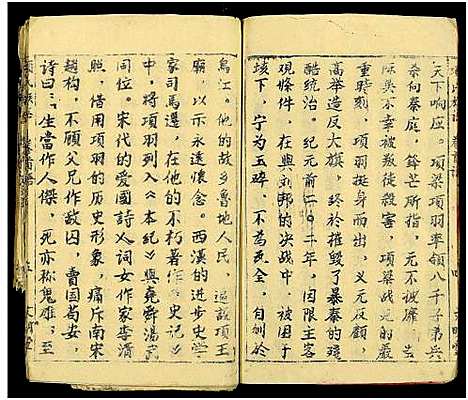 天下响应。项梁项羽率领八千子弟兵
秦向秦庭，锋芒所指，元不披靡。
陈吴不幸被叛徒殺害，項梁也
重時刻，項羽挺身而出，义元反顧，
高举造反大旗，終於摧毁了暴秦的殘
酷统治。纪元前二〇二年，因限主客
观條件，在與刘邦的决战中，被困于
垓下，宁为玉碎，不為瓦全，自刎於
烏江。他的故乡魯地人民，項王
廟，以示永遠懷念。西漢的進步史学
家司馬遷，在他的不朽著作《史记》
中，將項羽列入《本纪》與堯舜湯武
同位。宋代的爱國詩人詞女作家李清
照，借用項羽的历史形象，痛斥南宋
趙构，不顾父兄作敌囚，賣国苟安，
诗曰：生當作人傑，死亦為鬼雄，至